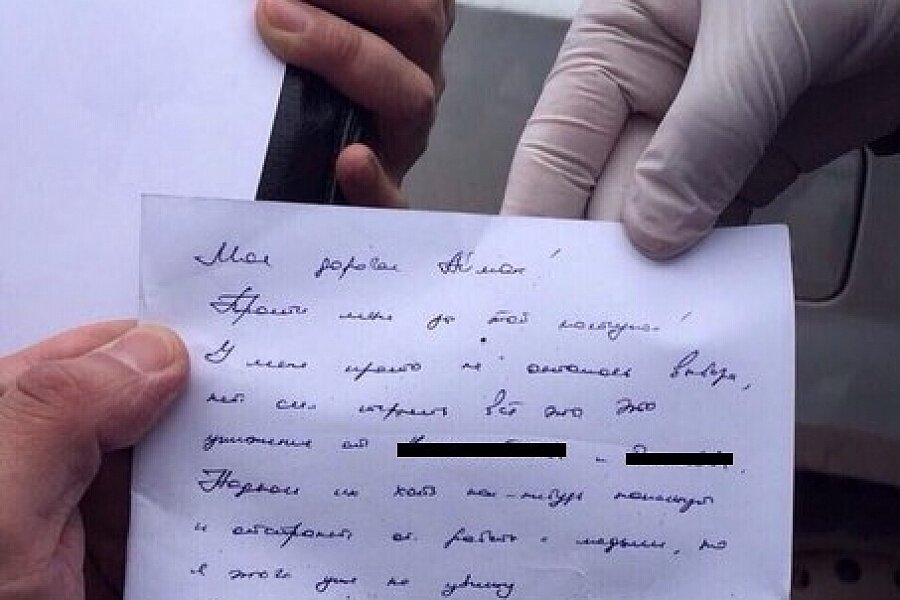 Моя дорогая Айман!
Прости меня за мой поступок!
У меня просто не осталось выбора,
нет сил терпеть всё это это
унижение от и
их хоть как-нибудь накажут
и отстранят от работы с людьми, но
я этого уже не увижу